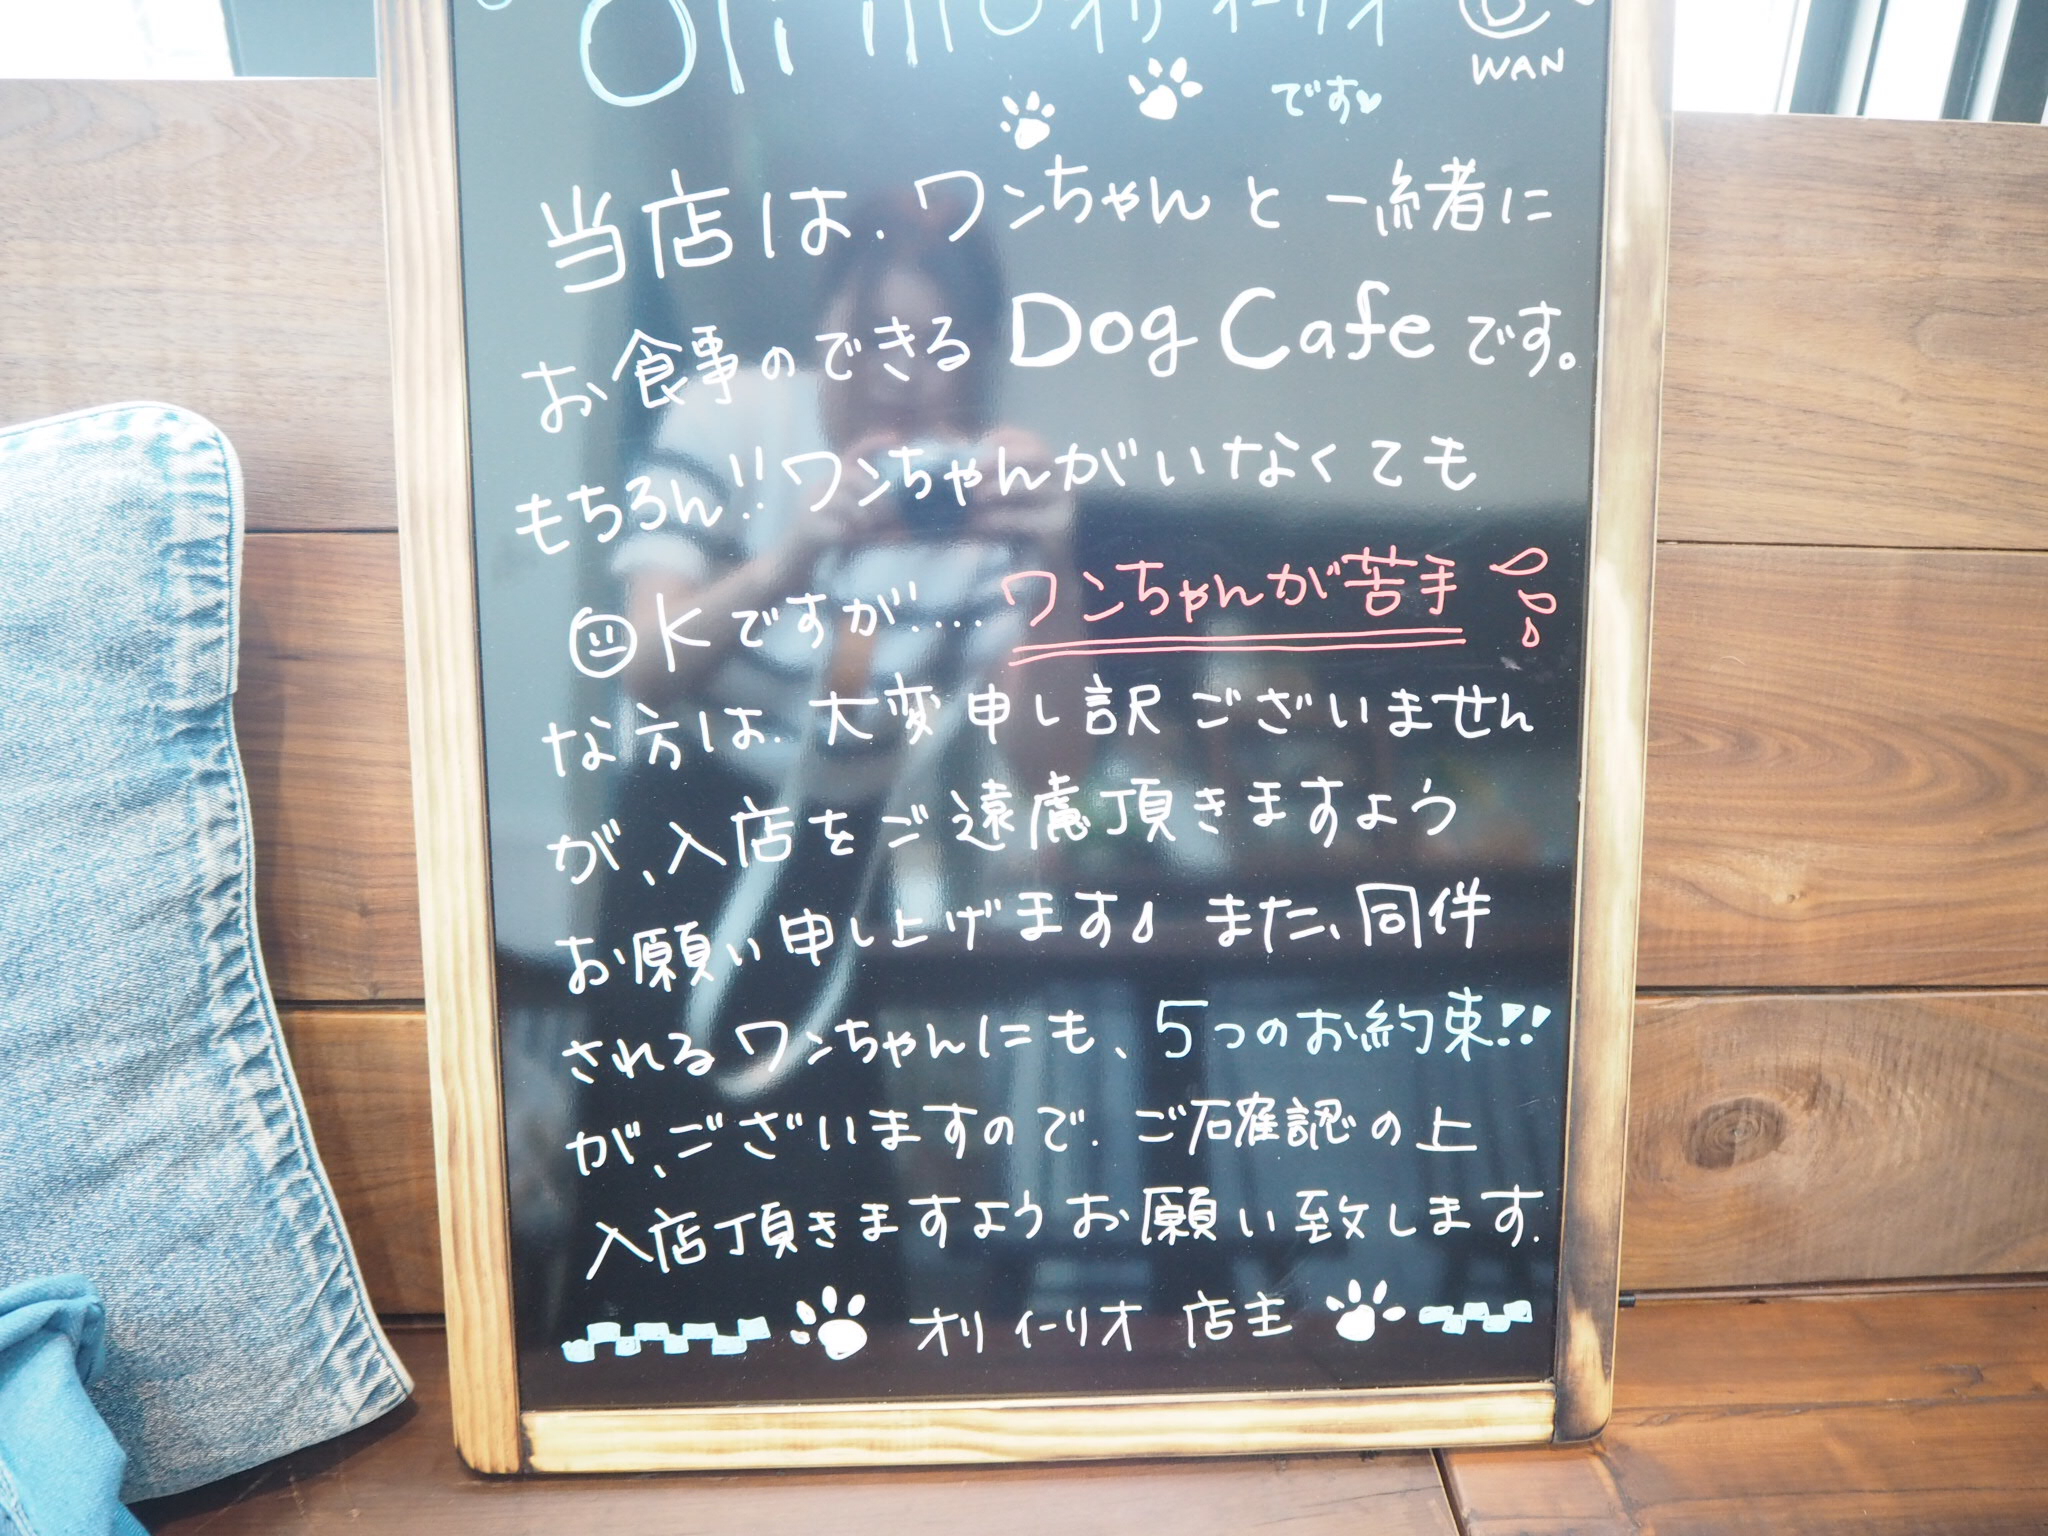 オリイーリオ
WAN
です
当店は、ワンちゃんと一緒に
お食事のできる Dog Cafe です。
もちろん!!ワンちゃんがいなくても
OKですが!....ワンちゃんが苦手
な方は、大変申し訳ございません
が、入店をご遠慮頂きますよう
お願い申し上げます♪ また、同伴
されるワンちゃんにも、5つのお約束!!
が、ございますので、ご確認の上
入店頂きますようお願い致します.
オリイーリオ 店主